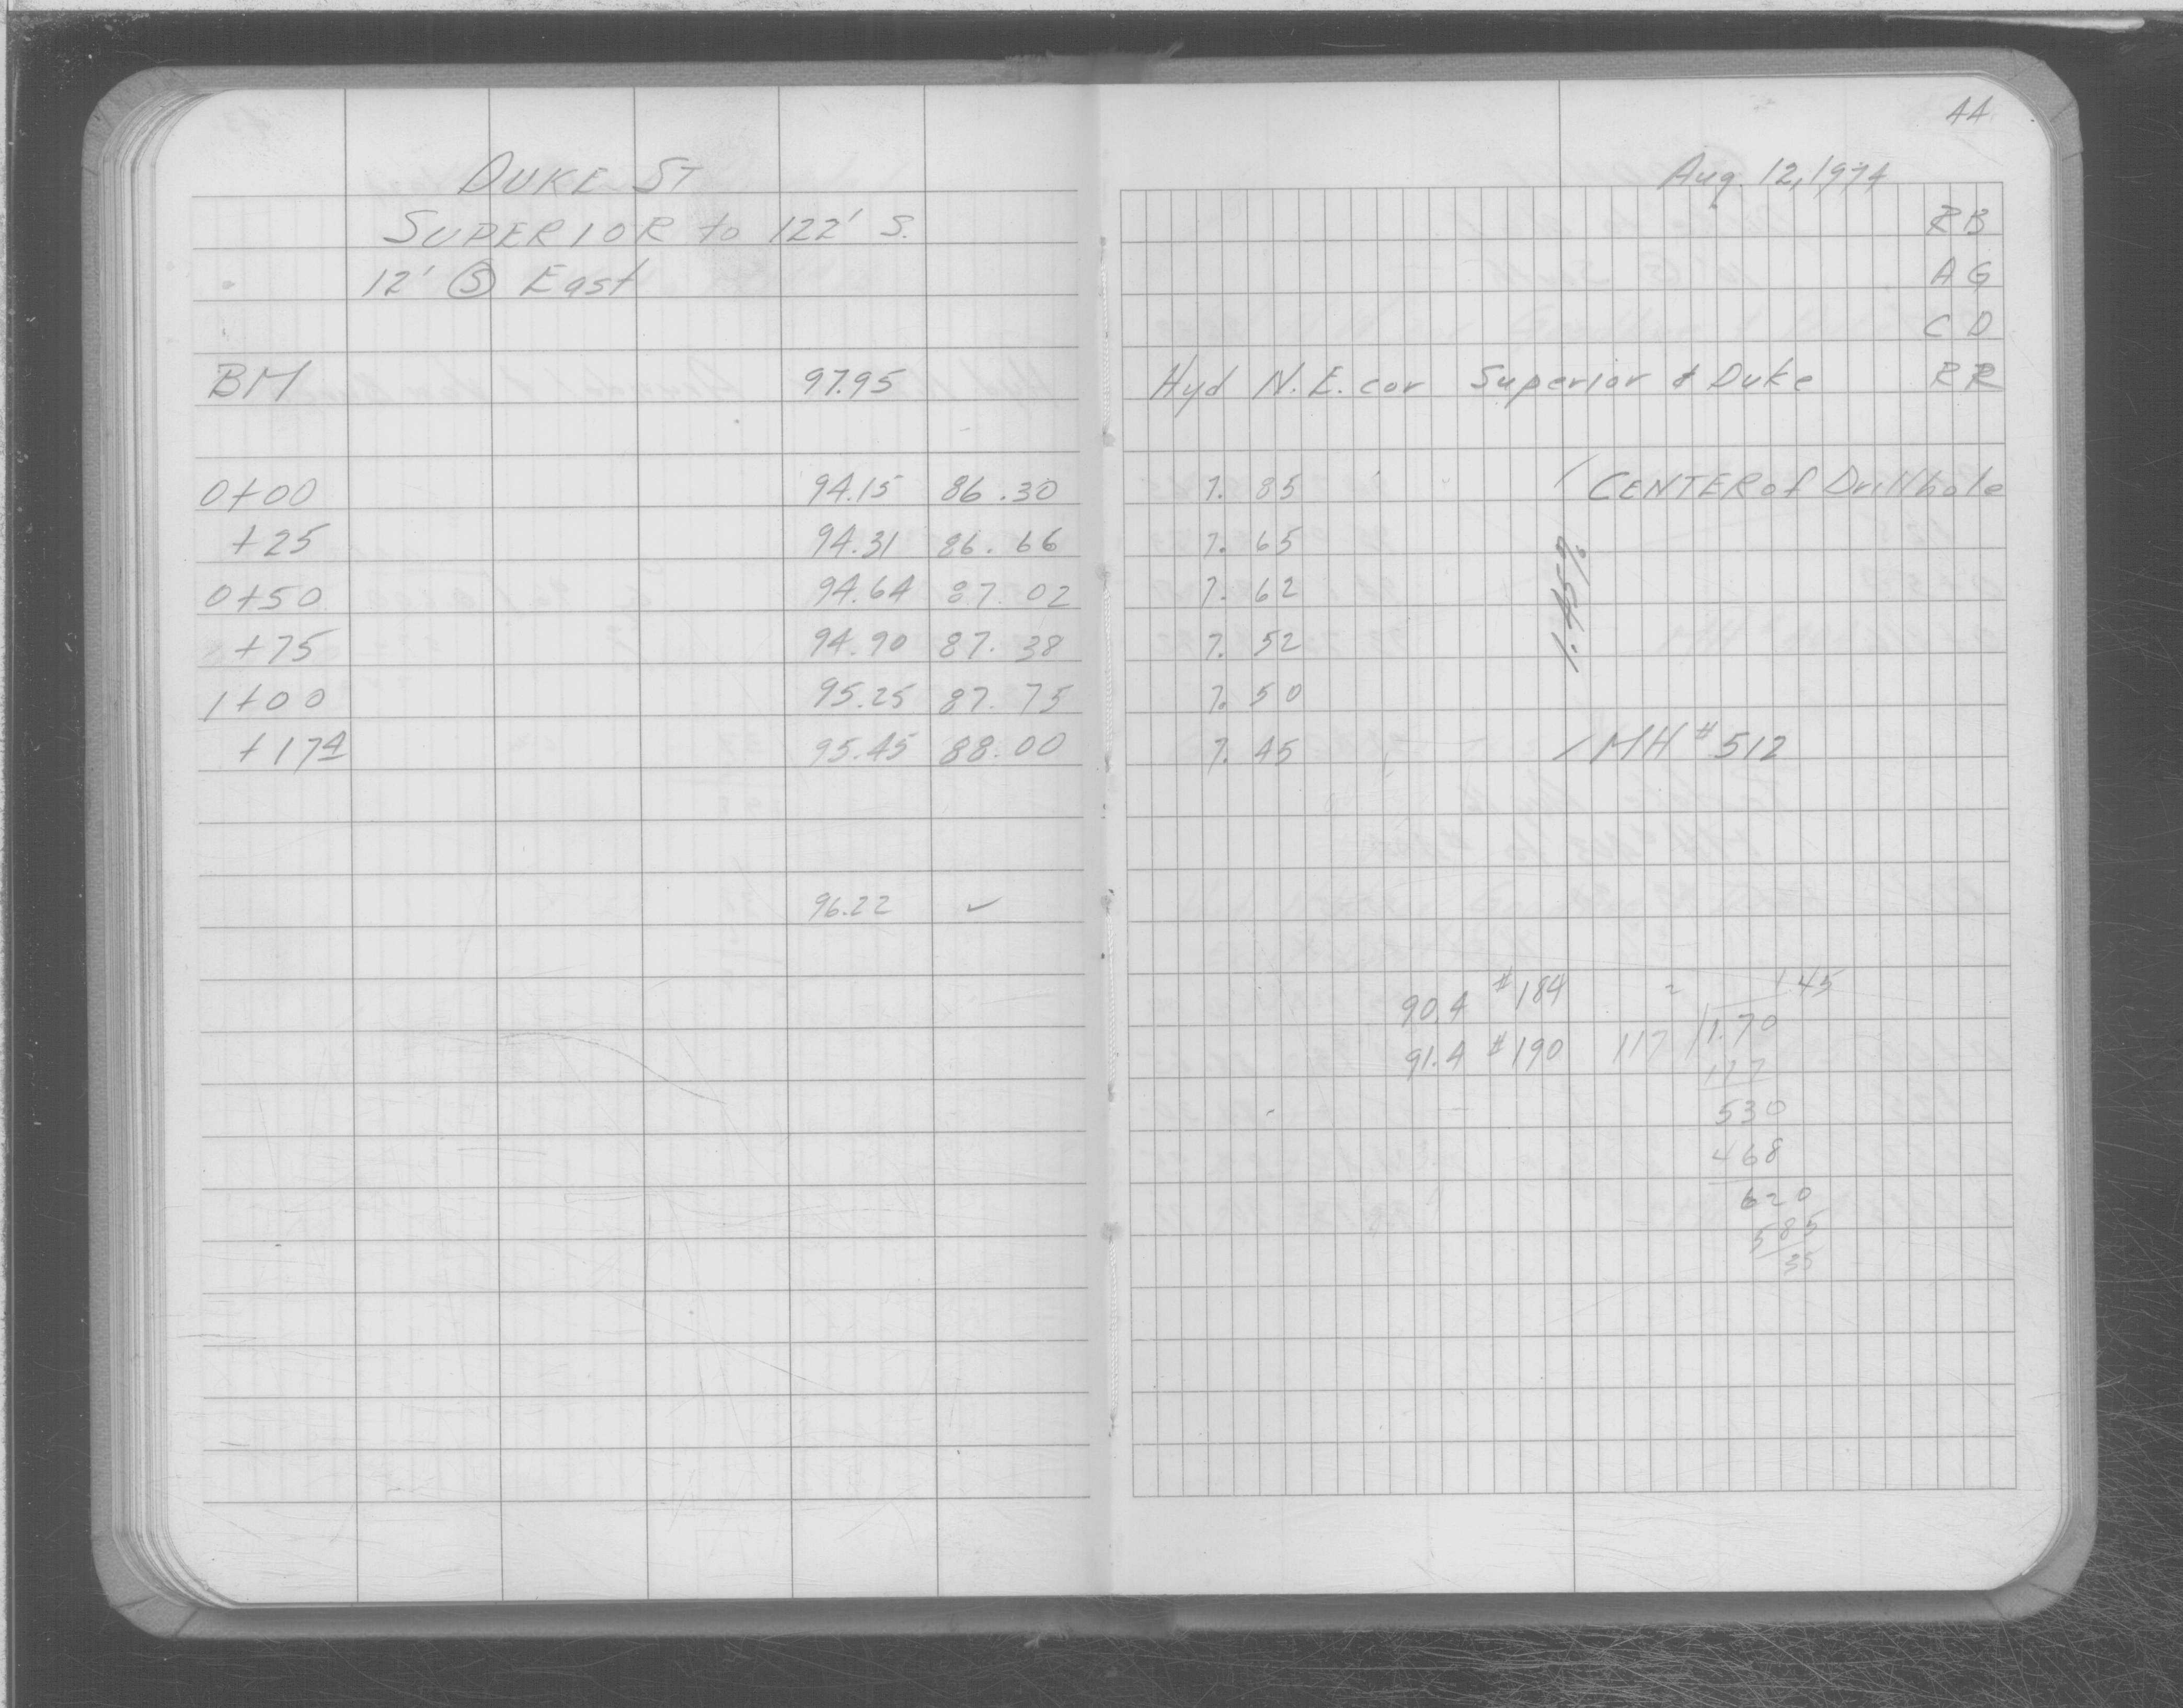 DUKE ST
SUPERIOR to 122' S.
12' Ⓢ East
BM 97.95
0+00 94.15 86.30
+25 94.31 86.66
0+50 94.64 87.02
+75 94.90 87.38
1+00 95.25 87.75
+174 95.45 88.00
96.22 ✓
44
Aug. 12, 1974
RB
AG
CD
Hyd N.E. cor Superior & Duke RR
7.85 CENTER of Drillhole
7.65
7.62
7.52
7.50
1.45%
7.45 MH #512
90.4 #184
91.4 #190
1 45
117 /1.70
117
530
468
620
585
35